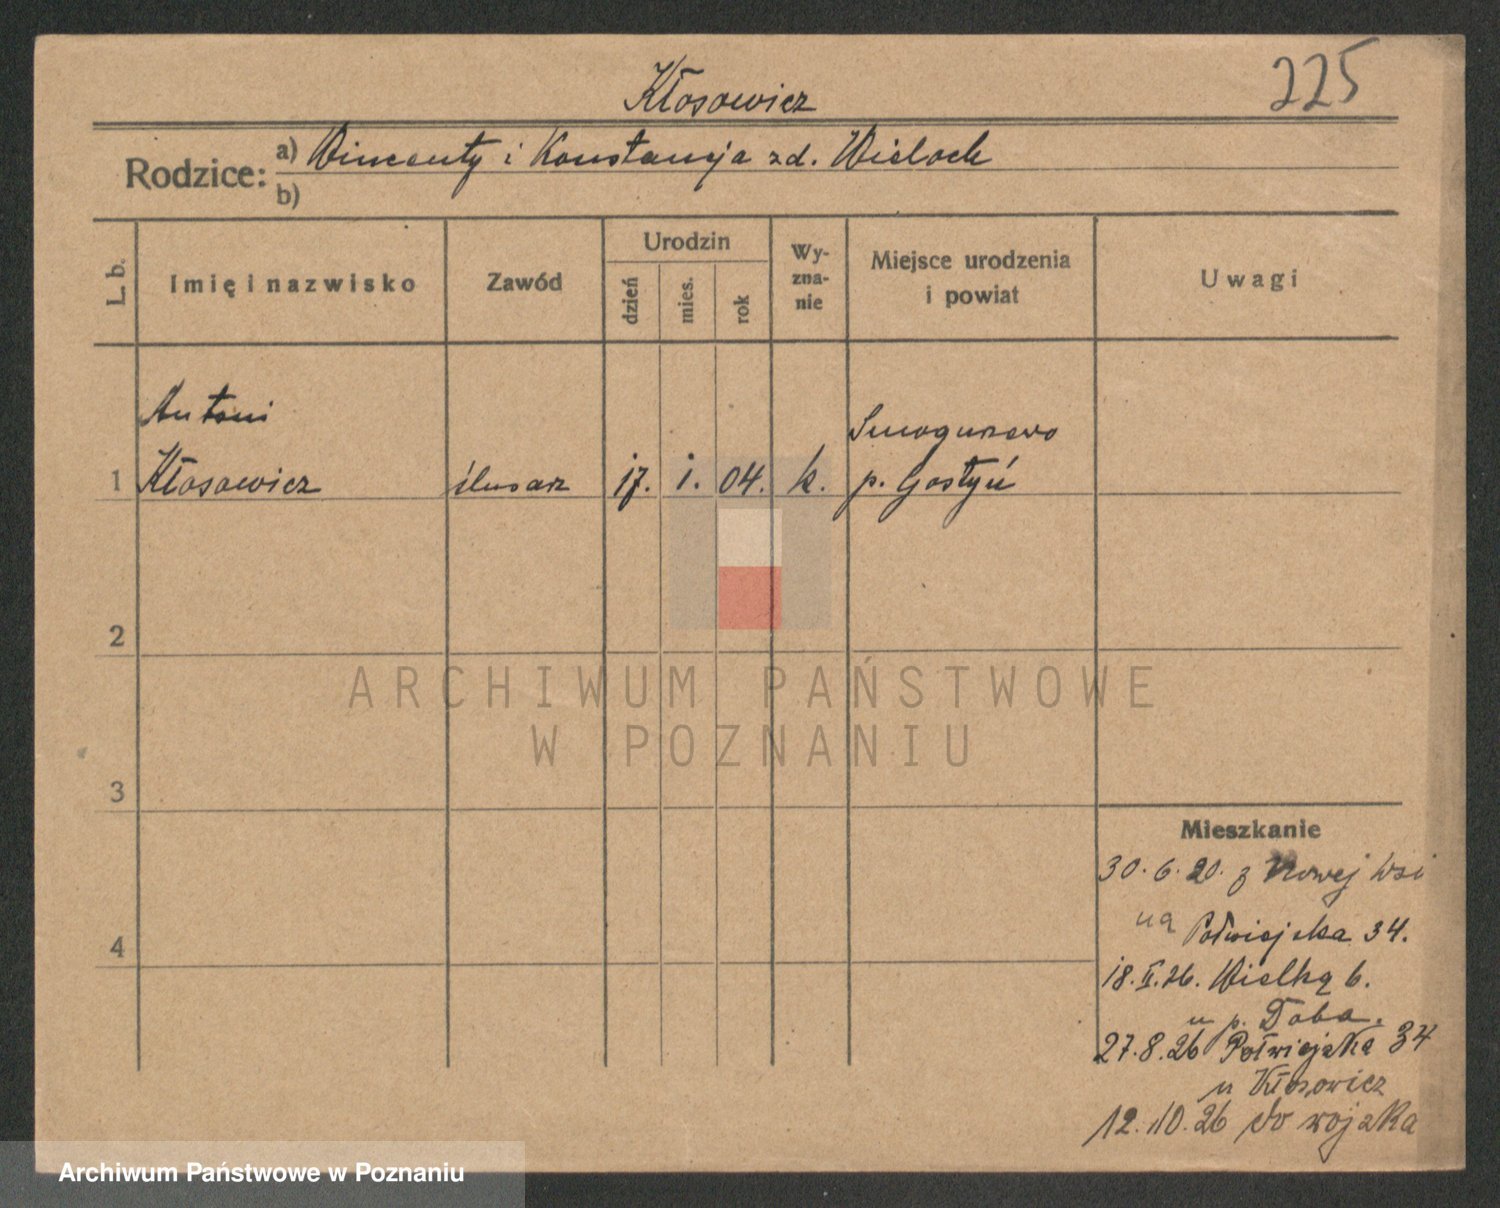 Kłosowicz
225
Rodzice:
a) Wincenty i Konstancja zd. Wieloch
b)
L. b.
Imię i nazwisko
Zawód
Urodzin
dzień
mies.
rok
Wy-
zna-
nie
Miejsce urodzenia
i powiat
Uwagi
Antoni
Smogorzewo
1 Kłosowicz ślusarz 17. 1. 04. k. p. Gostyń
2
ARCHIWUM PAŃSTWOWE
W POZNANIU
3
Mieszkanie
30. 6. 20. z Nowej Wsi
na Półwiejska 34.
4
18. II. 26. Wielką 6.
u p. Doba.
27. 8. 26 Półwiejska 34
u Kłosowicz
12. 10. 26 do wojska
Archiwum Państwowe w Poznaniu